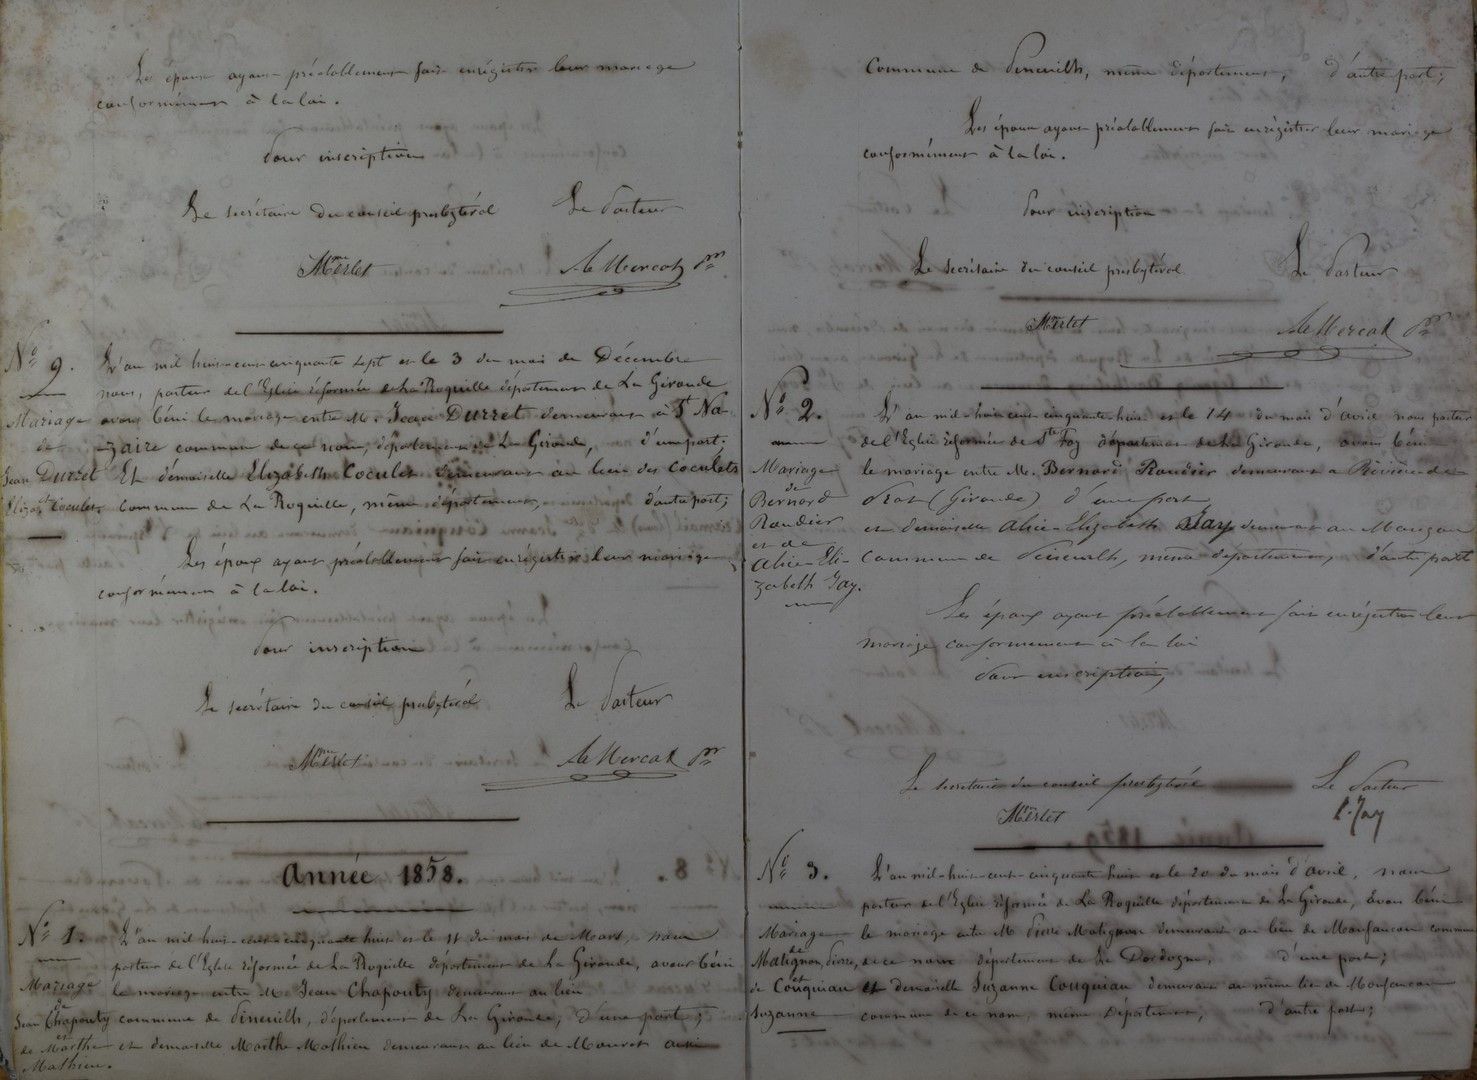 Les époux ayant préalablement fait enrégistrer leur mariage
conformément à la loi.
Pour inscription
Le secrétaire du conseil presbytéral Le Pasteur
Merlet
N° 9. L'an mil huit-cent-cinquante sept et le 3 du mois de Décembre
nous, pasteur de l'Eglise réformée de La Roquille département de La Gironde
Mariage avons béni le mariage entre M. Jean Duzzet demeurant à St Na-
de zaire commune de ce nom, département de La Gironde, d'une part.
Jean Duzzet Et demoiselle Elizabeth Coculet demeurant au lieu des Coculets
Elizabth Coculet. commune de La Roquille, même département, d'autre part;
Les époux ayant préalablement fait enrégistrer leur mariage
conformément à la loi.
Pour inscription
Le secrétaire du conseil presbytéral Le Pasteur
Merlet
Année 1858.
N° 1. L'an mil huit-cent-cinquante huit et le 11 du mois de Mars, nous
pasteur de l'Eglise réformée de La Roquille département de La Gironde, avons béni
Mariage le mariage entre M. Jean Chapouty demeurant au lieu
de
Jean Chapouty commune de Pineuilh, département de La Gironde; d'une part;
et
de Marthe et demoiselle Marthe Mathieu demeurant au lieu de Mauret
Mathieu.
Commune de Pineuilh, même département, d'autre part;
Les époux ayant préalablement fait enrégistrer leur mariage
conformément à la loi.
Pour inscription
Le secrétaire du conseil presbytéral Le Pasteur
Merlet
N° 2. L'an mil-huit-cent cinquante-huit et le 14 du mois d'avril nous pasteur
de l'Eglise réformée de Ste Foy département de la Gironde, avons béni
Mariage le mariage entre M. Bernard Raudier demeurant a Rivière de
de
Bernard Prat (Gironde) d'une part
Raudier et demoiselle Alice-Elizabeth Jay demeurant au
et de
Alice-Eli- commune de Pineuilh, même département, d'autre part
zabeth Jay.
Les époux ayant préalablement fait enrégistrer leur
mariage conformément à la loi
Pour inscription,
Le secrétaire du conseil presbytéral Le Pasteur
Merlet P. Jay
N° 3. L'an mil-huit-cent-cinquante huit et le 20 du mois d'avril, nous
pasteur de l'Eglise réformée de La Roquille département de La Gironde, avons béni
Mariage le mariage entre M Pierre Matignon demeurant au lieu de Monfaucon commune
de
Matignon, Pierre, de ce nom département de la Dordogne, d'une part;
et
de Couquiau et demoiselle Suzanne Couquiau demeurant au même lieu de Monfaucon
Suzanne commune de ce nom, même département, d'autre part;